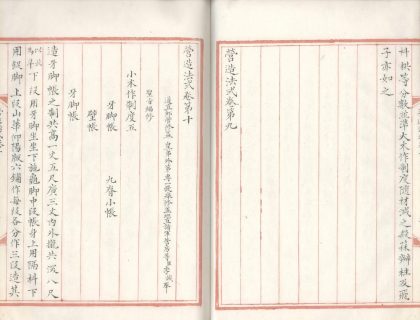 枓栱等分數並準大木作制度隨材減之殺蒜瓣柱及飛
子亦如之
營造法式卷第九
營造法式卷第十
通直郎管修蓋皇弟外第專一提舉修蓋班直諸軍營房等臣李誡奉
聖旨編修
小木作制度五
牙脚帳 九脊小帳
壁帳
牙脚帳
造牙脚帳之制共高一丈五尺廣三丈內外攏共深八尺
以此為率下段用牙脚坐坐下施龜脚中段帳身上用隔枓下
用鋜脚上段山華仰陽版六鋪作每段各分作三段造其